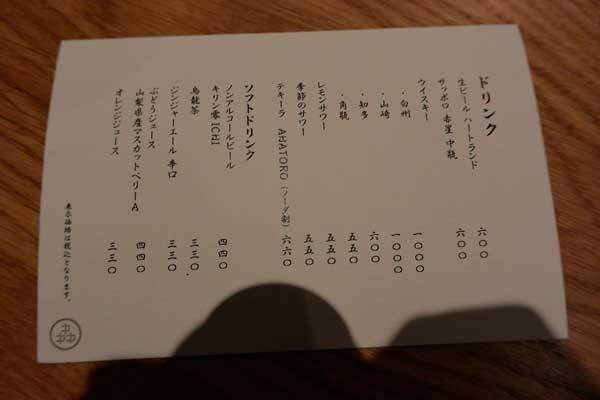 ドリンク
生ビール ハートランド 六〇〇
サッポロ 赤星 中瓶 六〇〇
ウイスキー
・白州 一〇〇〇
・山崎 一〇〇〇
・知多 六〇〇
・角瓶 五五〇
レモンサワー 五五〇
季節のサワー 五五〇
テキーラ AHATORO（ソーダ割） 六六〇
ソフトドリンク
ノンアルコールビール
キリン零ICHI 四四〇
烏龍茶 三三〇
ジンジャーエール 辛口 三三〇
ぶどうジュース
山梨県産マスカットベリーA 四四〇
オレンジジュース 三三〇
表示価格は税込となります。